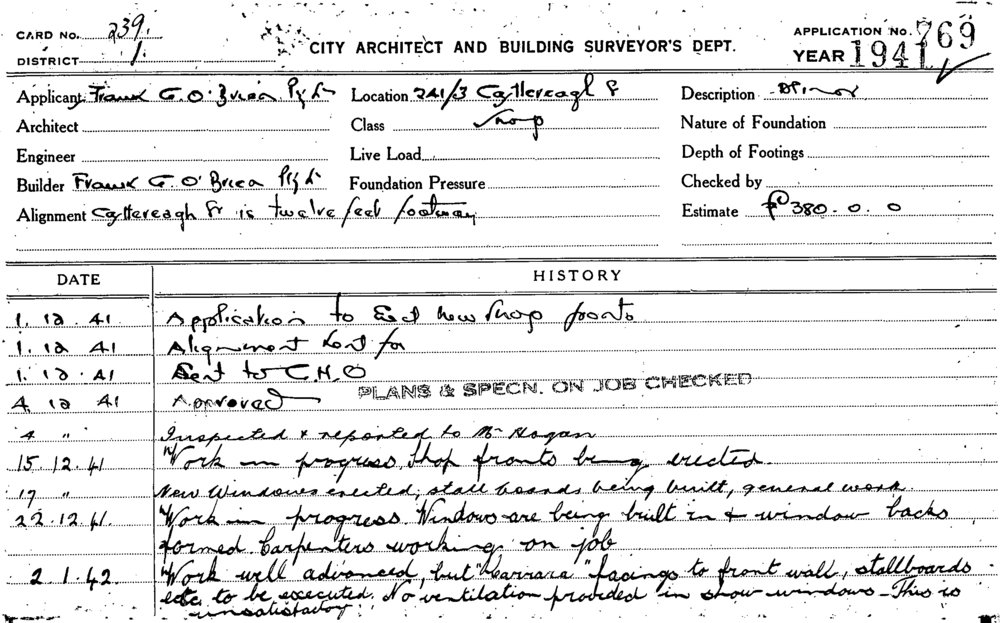 CARD No. 239.
DISTRICT 1.
CITY ARCHITECT AND BUILDING SURVEYOR'S DEPT.
APPLICATION No. 769
YEAR 1941
Applicant Frank G. O'Brien Pty Ln Location 241/3 Castlereagh St Description
Architect Class Shop Nature of Foundation
Engineer Live Load Depth of Footings
Builder Frank G. O'Brien Pty Ln Foundation Pressure Checked by
Alignment Castlereagh St is twelve feet footway Estimate £380.0.0
DATE HISTORY
1.12.41 Application to Erect new shop fronts
1.12.41 Alignment sent for
1.12.41 Sent to C.H.O
4.12.41 Approved PLANS & SPECN. ON JOB CHECKED
4 " Inspected & reported to Mr Hogan
15.12.41 Work in progress, shop fronts being erected.
17 " New Windows erected, stall boards being built, general work.
22.12.41. Work in progress. Windows are being built in & window backs
formed. Carpenters working on job
2.1.42. Work well advanced, but "Carrara" facings to front wall, stallboards
etc. to be executed. No ventilation provided in show windows - This is
unsatisfactory.